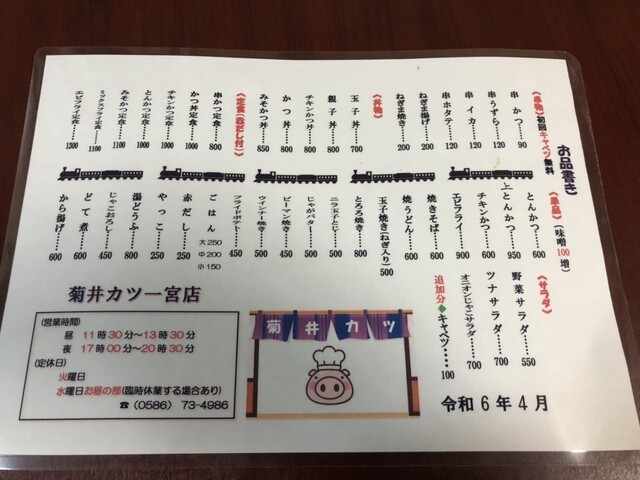 お品書き
《串物》初回キャベツ無料
串かつ……90
串うずら……120
串イカ……120
串ホタテ……120
ねぎま揚げ……200
ねぎま焼き……200
《丼物》
玉子丼……700
親子丼……800
チキンかつ丼……800
かつ丼……800
みそかつ丼……850
《定食(赤だし付)》
串かつ定食……800
かつ丼定食……1000
チキンかつ定食……1000
とんかつ定食……1000
みそかつ定食……1100
ミックスフライ定食……1100
エビフライ定食……1300
《単品》(味噌100増)
とんかつ……600
上とんかつ……950
チキンかつ……600
エビフライ……950
焼きそば……600
焼うどん……600
玉子焼き(ねぎ入り)500
とろろ焼き……800
ニラ玉子とじ……500
じゃがバター……400
ピーマン焼き……450
ウインナー焼き……500
フライドポテト……450
ごはん 大250
中200
小150
赤だし……250
やっこ……250
湯どうふ……800
じゃこおろし……450
どて煮……600
から揚げ……600
《サラダ》
野菜サラダ……550
ツナサラダ……700
オニオンじゃこサラダ……700
追加分◆キャベツ……100
菊井カツ一宮店
(営業時間)
昼 11時30分～13時30分
夜 17時00分～20時30分
(定休日)
火曜日
水曜日お昼の部(臨時休業する場合あり)
☎(0586) 73-4986
菊井カツ
令和6年4月